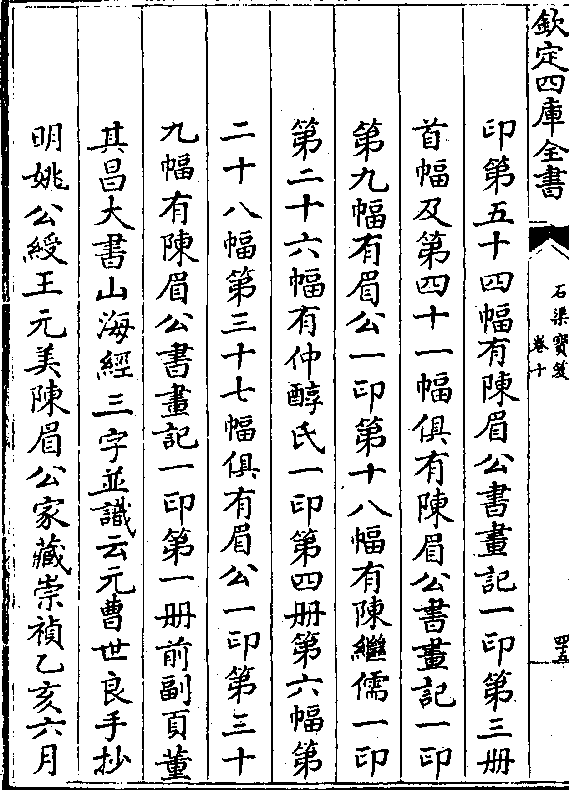 欽定四庫全書
石渠寶笈
卷十
四五
印第五十四幅有陳眉公書畫記一印第三册
首幅及第四十一幅俱有陳眉公書畫記一印
第九幅有眉公一印第十八幅有陳繼儒一印
第二十六幅有仲醇氏一印第四册第六幅第
二十八幅第三十七幅俱有眉公一印第三十
九幅有陳眉公書畫記一印第一册前副頁董
其昌大書山海經三字並識云元曹世良手抄
明姚公綬王元美陳眉公家藏崇禎乙亥六月